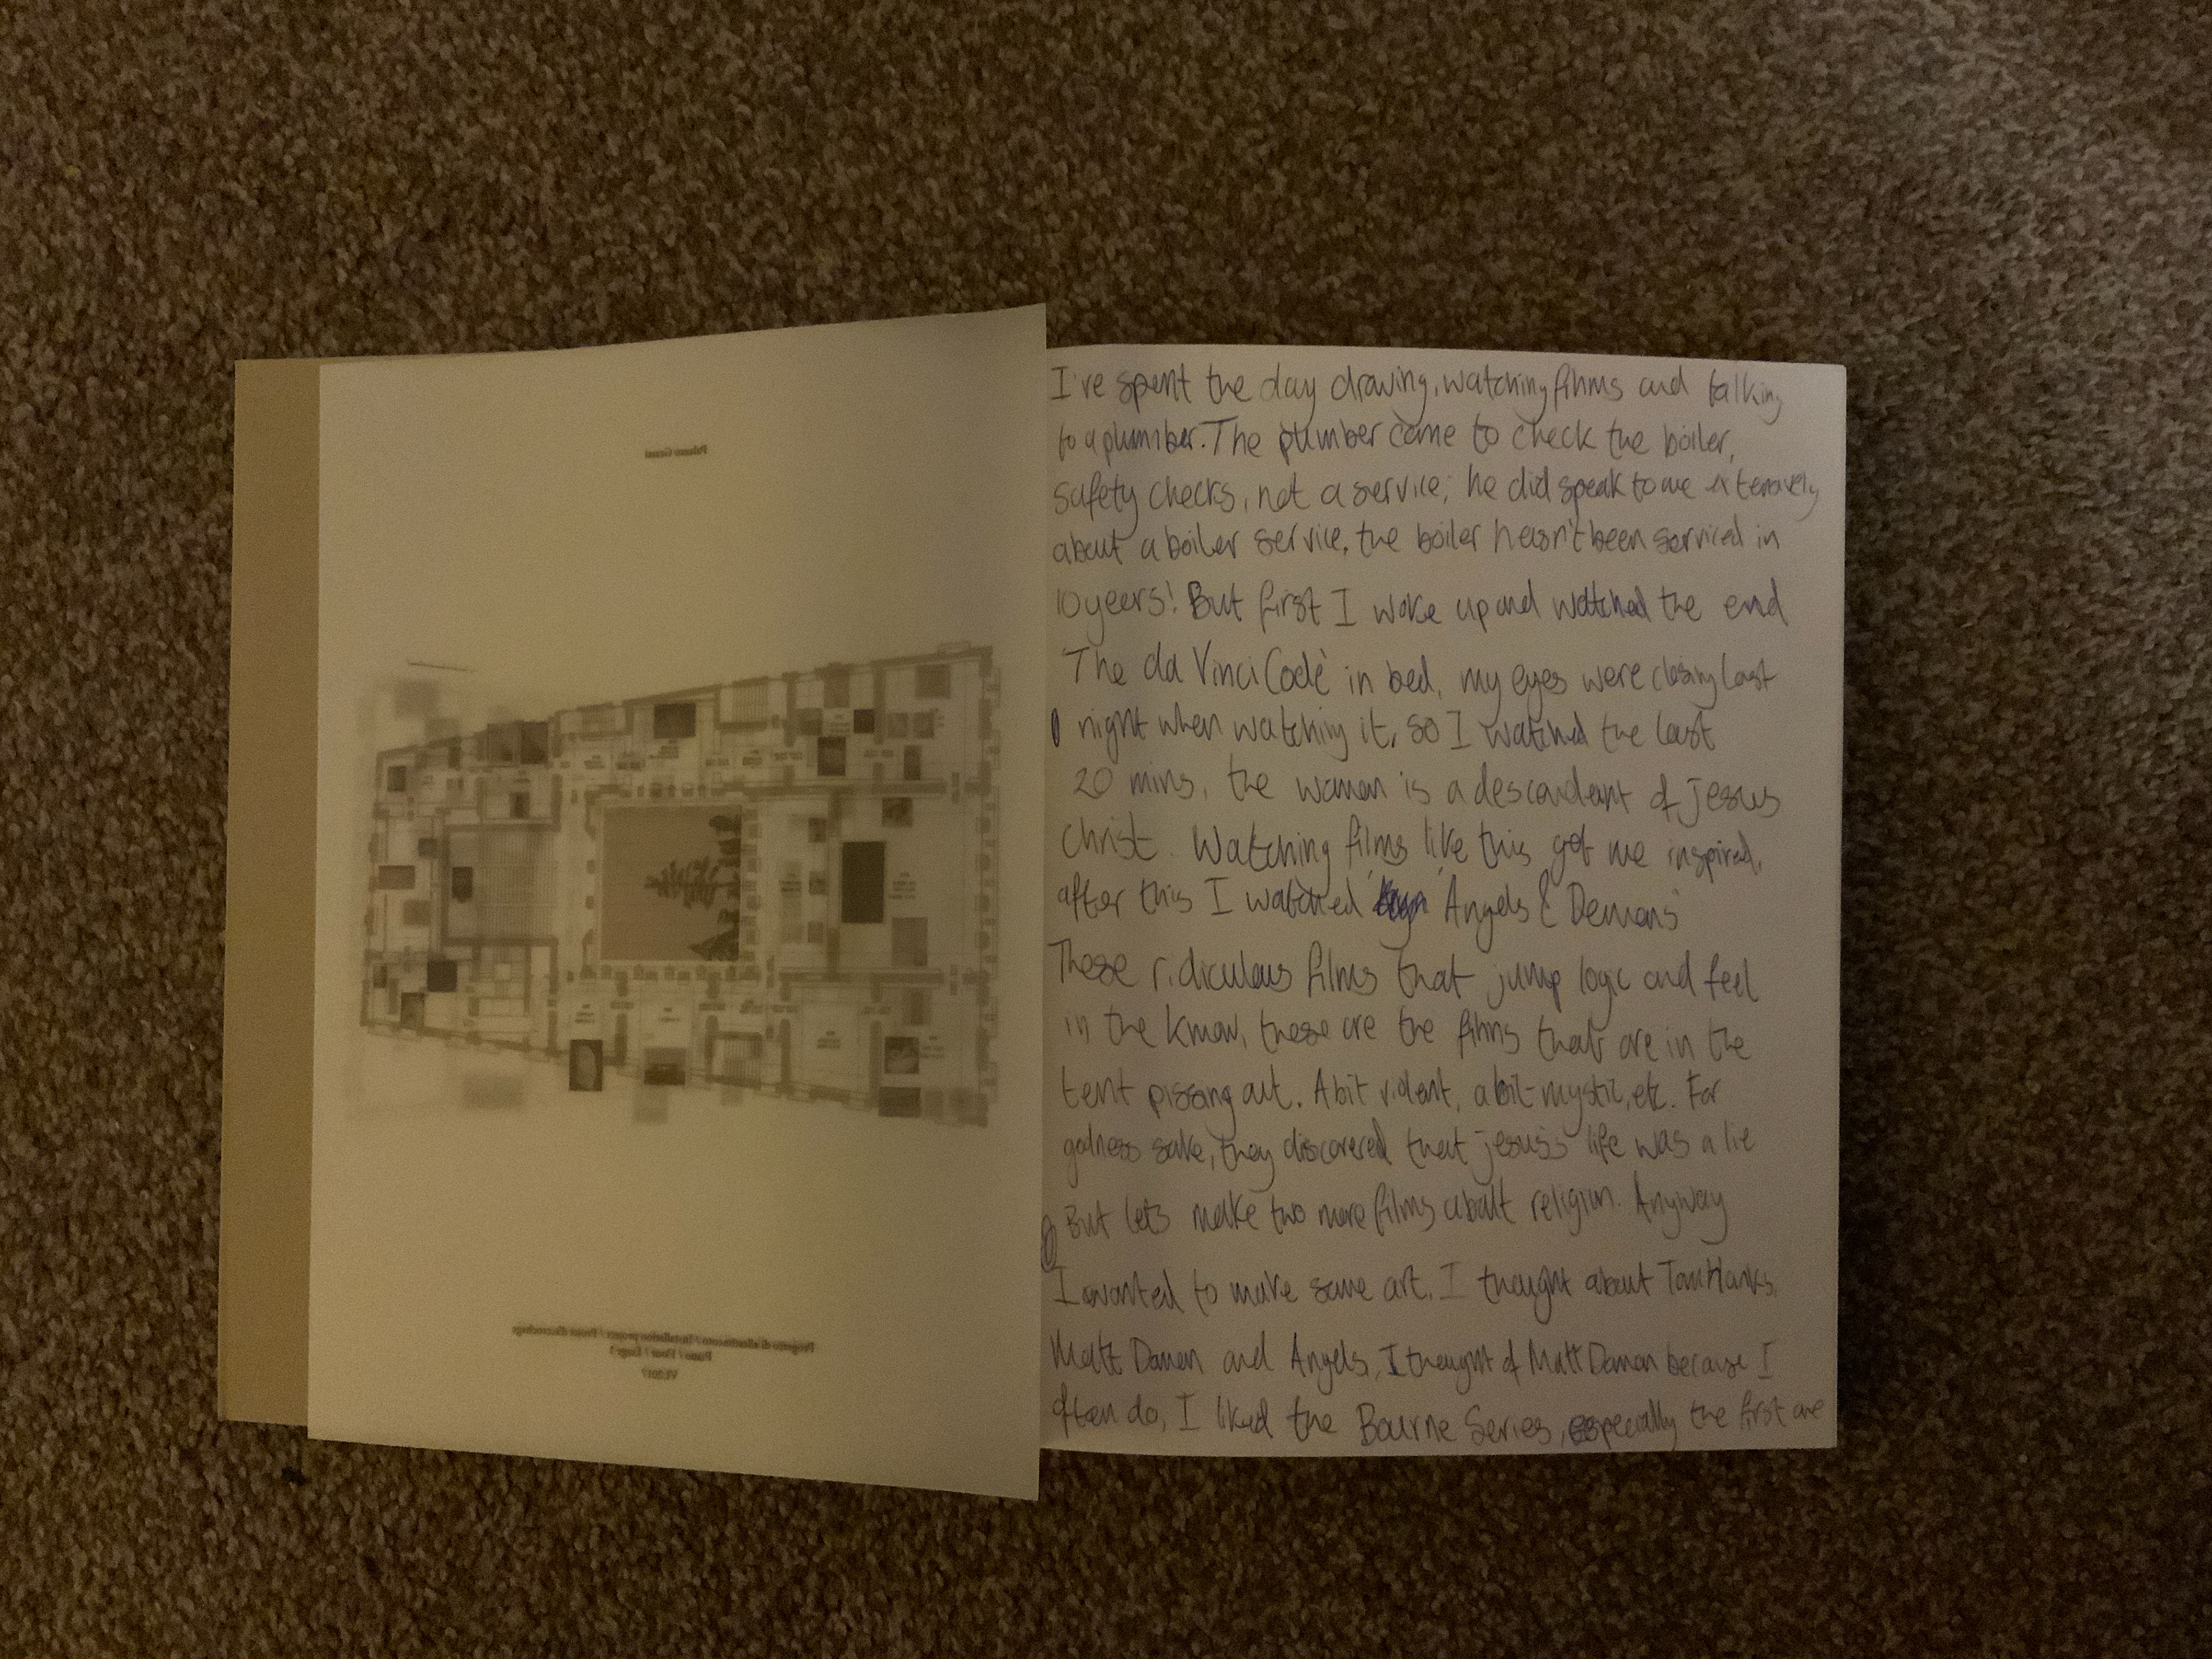 Palazzo Grassi
Progetto di allestimento / Installation project / Projet d'accrochage
Piano / Floor / Étage 1
VI.2017
I've spent the day drawing, watching films and talking
to a plumber. The plumber came to check the boiler,
safety checks, not a service; he did speak to me extensively
about a boiler service, the boiler hasn't been serviced in
10 years! But first I woke up and watched the end
'The da Vinci Code' in bed, my eyes were closing last
night when watching it, so I watched the last
20 mins, the woman is a descendant of jesus
christ. Watching films like this got me inspired,
after this I watched 'Angels & Demons'
These ridiculous films that jump logic and feel
in the know, these are the films that are in the
tent pissing out. A bit violent, a bit mystic, etc. For
godness sake, they discovered that jesus's life was a lie
But lets make two more films about religion. Anyway
I wanted to make some art. I thought about Tom Hanks,
Matt Damon and Angels, I thought of Matt Damon because I
often do, I liked the Bourne Series, especially the first one